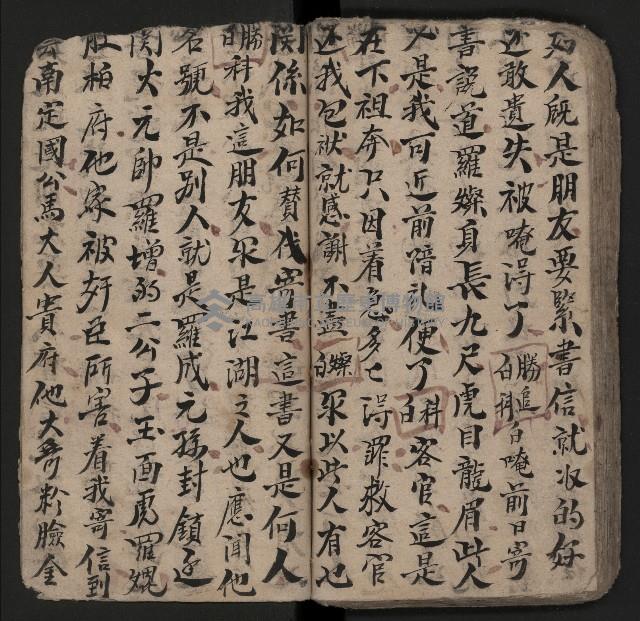 人既是朋友要緊書信就收的好
敢遺失被唵淂了白勝追科白唵前日寄
書說道羅燦身長九尺虎目龍眉此人
是我可近前暗礼便了科白客官這是
在下祖奔只因着急多亡淂罪敎客官
还我包袱就感謝不盡燦白眾以此人有也
関係如何賛伐寄書這書又是何人
勝白科我這朋友眾是江湖之人也應聞他
名號不是別人就是羅成元孫封鎖
関大元帥羅增的二公子玉面虎羅焜
柏府他家被奸臣所害着我寄信到
雲南定國公馬大人貴府他大哥粉臉金
高雄市立歷史博物館